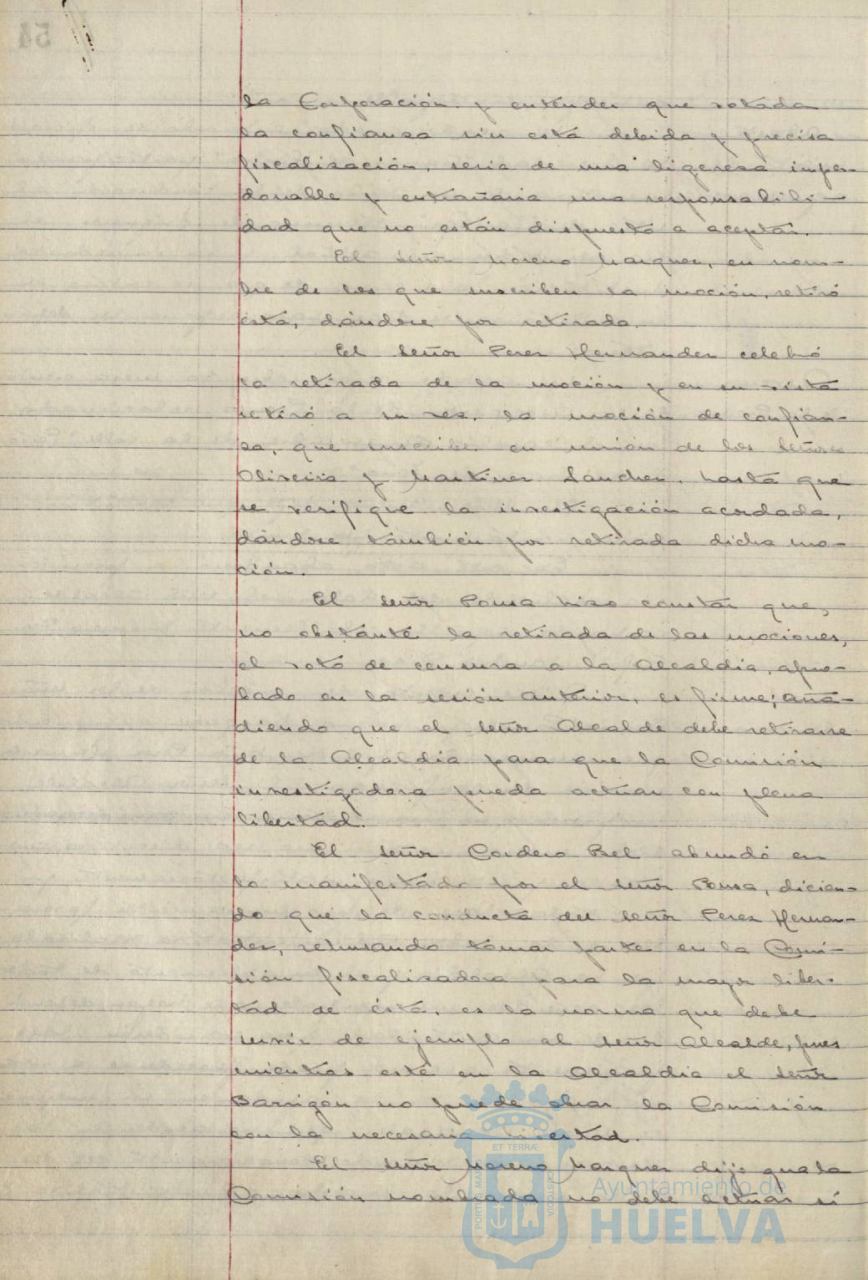 54
la Corporación y entender que votada
la confianza sin está debida y precisa
fiscalización, seria de una ligereza imper-
donable y entrañaria una responsabili-
dad que no están dispuesto a aceptar.
El señor Moreno Marquez, en nom-
bre de los que suscriben la moción, retiró
está, dándose por retirada.
El señor Perez Hernandez celebró
la retirada de la moción y en su vista
retiró a su vez, la moción de confian-
za, que suscribe en unión de los Señores
Oliveira y Martinez Sanchez, hasta que
se verifique la investigación acordada,
dándose también por retirada dicha mo-
ción.
El señor Ponsa hizo constar que,
no obstánte la retirada de las mociones,
el voto de censura a la Alcaldia, apro-
bado en la sesión anterior, es firme; aña-
diendo que el señor Alcalde debe retirarse
de la Alcaldia para que la Comisión
investigadora pueda actuar con plena
libertad.
El señor Cordero Bel abundó en
lo manifestado por el señor Ponsa, dicien-
do que la conducta del señor Perez Hernan-
dez, rehusando tomar parte en la Comi-
sión fiscalizadora para la mayor liber-
tad de ésta, es la norma que debe
servir de ejemplo al señor Alcalde, pues
mientras esté en la Alcaldia el señor
Barrigón no puede obrar la Comisión
con la necesaria libertad.
El señor Moreno Marquez dijo que la
Comisión nombrada no debe actuar si
PORTUS MARIS
ET TERRÆ
CUSTODIA
Ayuntamiento de
HUELVA